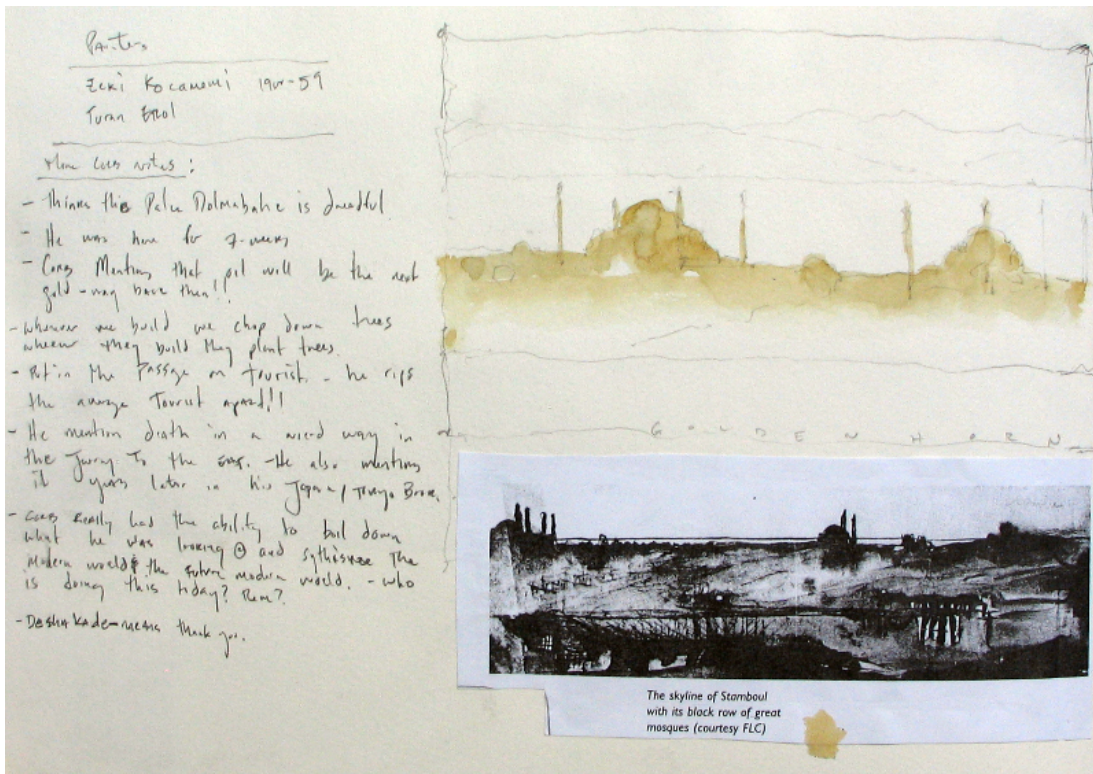 Painters
Zeki Kocamemi 1900-59
Turan Erol
More Corb notes:
- Thinks the Palce Dolmabahe is dreadful.
- He was here for 7-weeks
- Corb Mentions that oil will be the next
gold - way back then!!
- whenever we build we chop down trees
whenever they build they plant trees.
- Put in the Passage on Tourist. - he rips
the average Tourist apart!!
- He mention death in a wierd way in
the Jurny To the East. - He also mentions
it years later in his Japan / Tokyo
- Corb Really had the ability to boil down
what he was looking @ and sythisize The
modern world & the future modern world. - who
is doing this today? Rem?
- means thank you.
GOLDEN HORN
The skyline of Stamboul
with its black row of great
mosques (courtesy FLC)